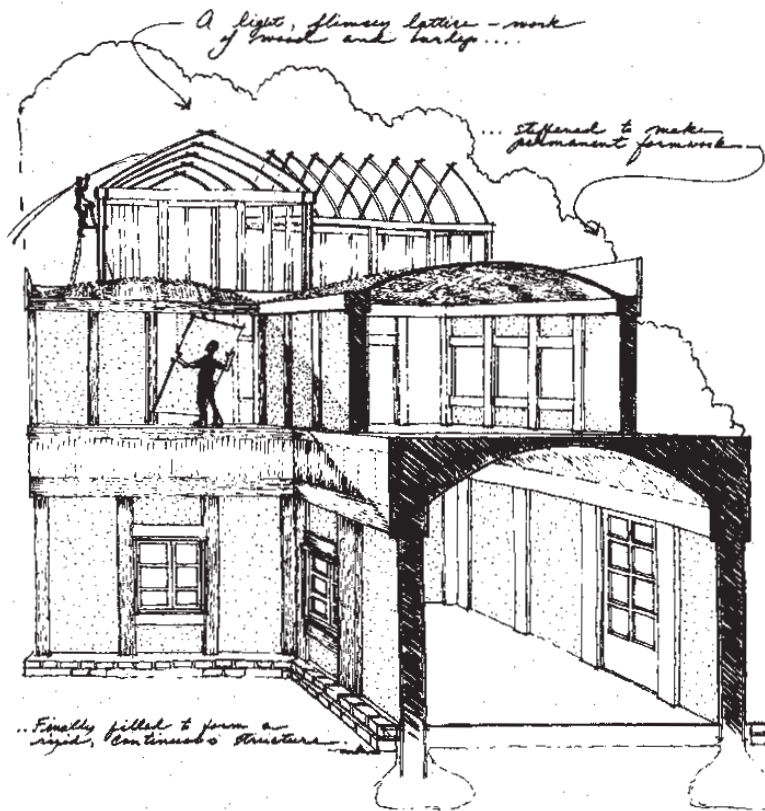 A light, flimsey lattice - work
of wood and burlap....
... stiffened to make
permanant formwork
..Finally filled to form a
rigid, continuous structure.